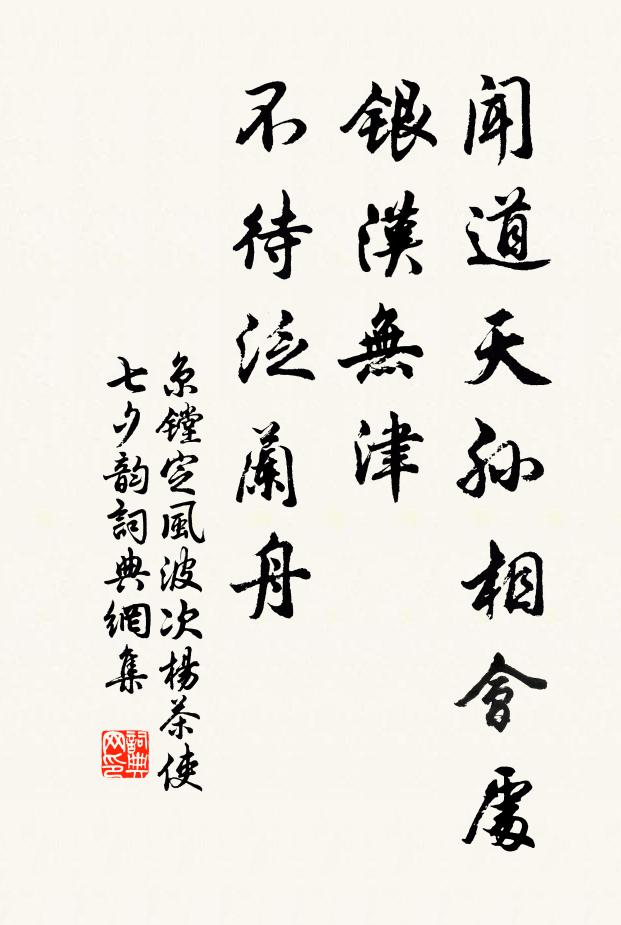 聞道天孫相會處
銀漢無津
不待泛蘭舟
京鏜定風波次楊茶使
七夕韵詞典網集
詞典网印